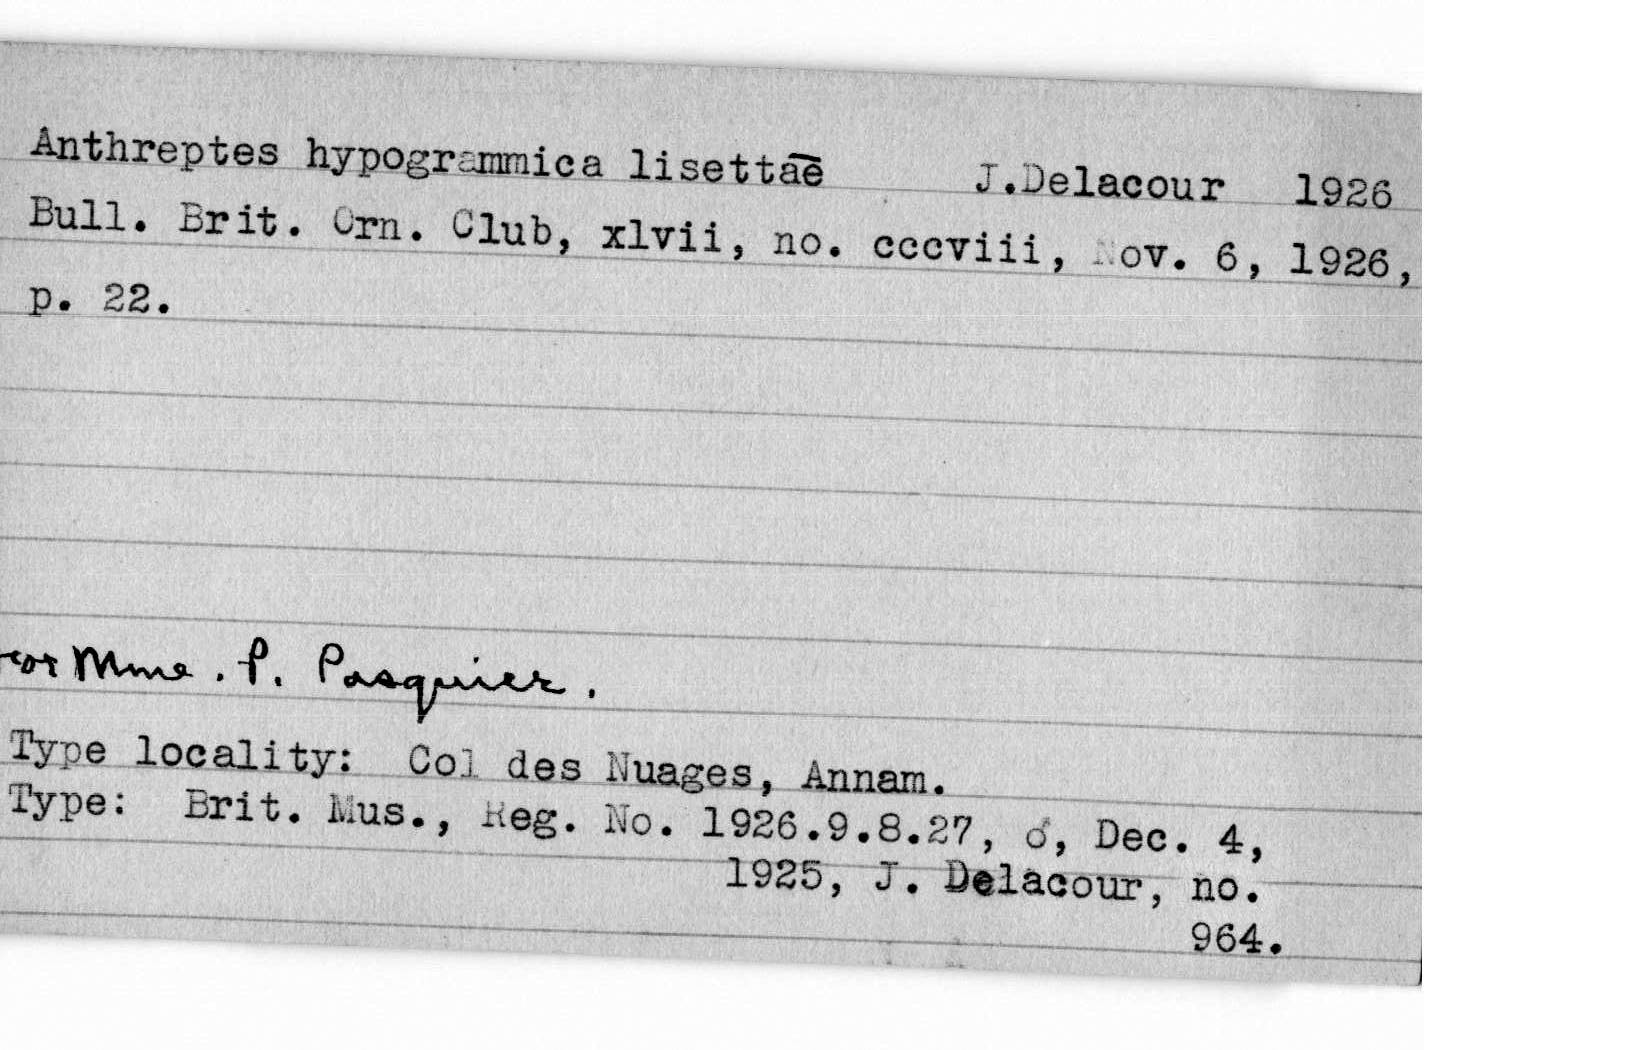 Anthreptes hypogrammica lisettae J.Delacour 1926
Bull. Brit. Orn. Club, xlvii, no. cccviii, Nov. 6, 1926,
p. 22.
for Mme. P. Pasquier.
Type locality: Col des Nuages, Annam.
Type: Brit. Mus., Reg. No. 1926.9.8.27, ♂, Dec. 4,
1925, J. Delacour, no.
964.